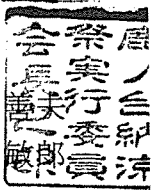 鹿ノ台納涼
祭実行委員
会長
善夫
敏郎